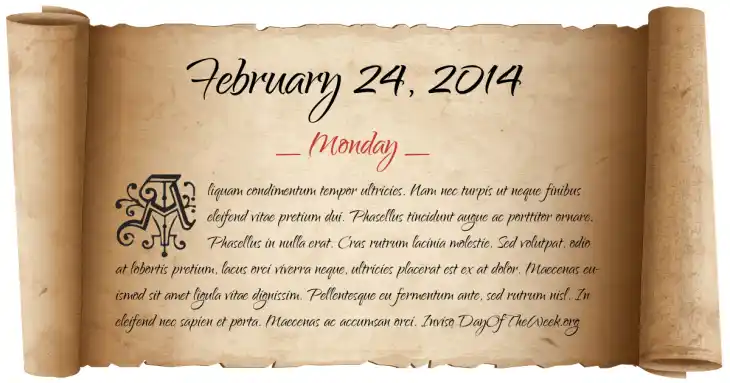 February 24, 2014
— Monday —
Aliquam condimentum tempor ultricies. Nam nec turpis ut neque finibus
eleifend vitae pretium dui. Phasellus tincidunt augue ac porttitor ornare.
Phasellus in nulla erat. Cras rutrum lacinia molestie. Sed volutpat, odio
at lobortis pretium, lacus orci viverra neque, ultricies placerat est ex at dolor. Maecenas eu-
ismod sit amet ligula vitae dignissim. Pellentesque eu fermentum ante, sed rutrum nisl. In
eleifend nec sapien et porta. Maecenas ac accumsan orci. Invisq DayOfTheWeek.org